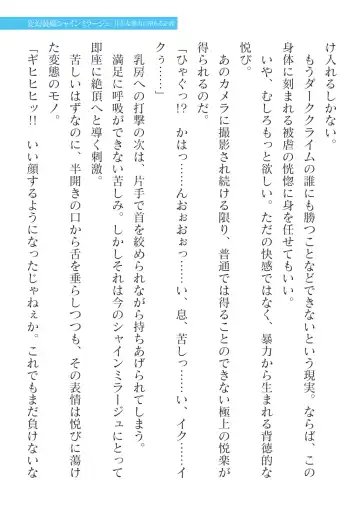 け入れるしかない。
もうダーククライムの誰にも勝つことなどできないという現実。ならば、この
身体に刻まれる被虐の恍惚に身を任せてもいい。
いや、むしろもっと欲しい。ただの快感ではなく、暴力から生まれる背徳的な
悦び。
あのカメラに撮影され続ける限り、普通では得ることのできない極上の悦楽が
得られるのだ。
「ひゃぐっ!?　かはっ……んおぉおぉっ……い、息、苦しっ……い、イク……イ
クぅ……」
乳房への打撃の次は、片手で首を絞められながら持ちあげられてしまう。
満足に呼吸ができない苦しみ。しかしそれは今のシャインミラージュにとって
即座に絶頂へと導く刺激。
苦しいはずなのに、半開きの口から舌を垂らしつつも、その表情は悦びに蕩け
た変態のモノ。
「ギヒヒヒッ!!　いい顔するようになったじゃねぇか。これでもまだ負けないな